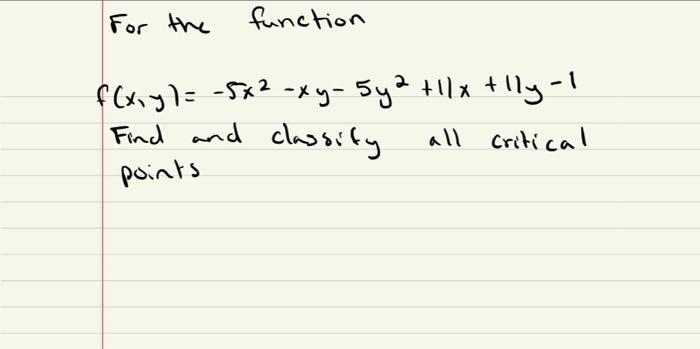 For the function
f(x,y)= -5x² -xy- 5y² +11x +11y-1
Find and classify all critical
points